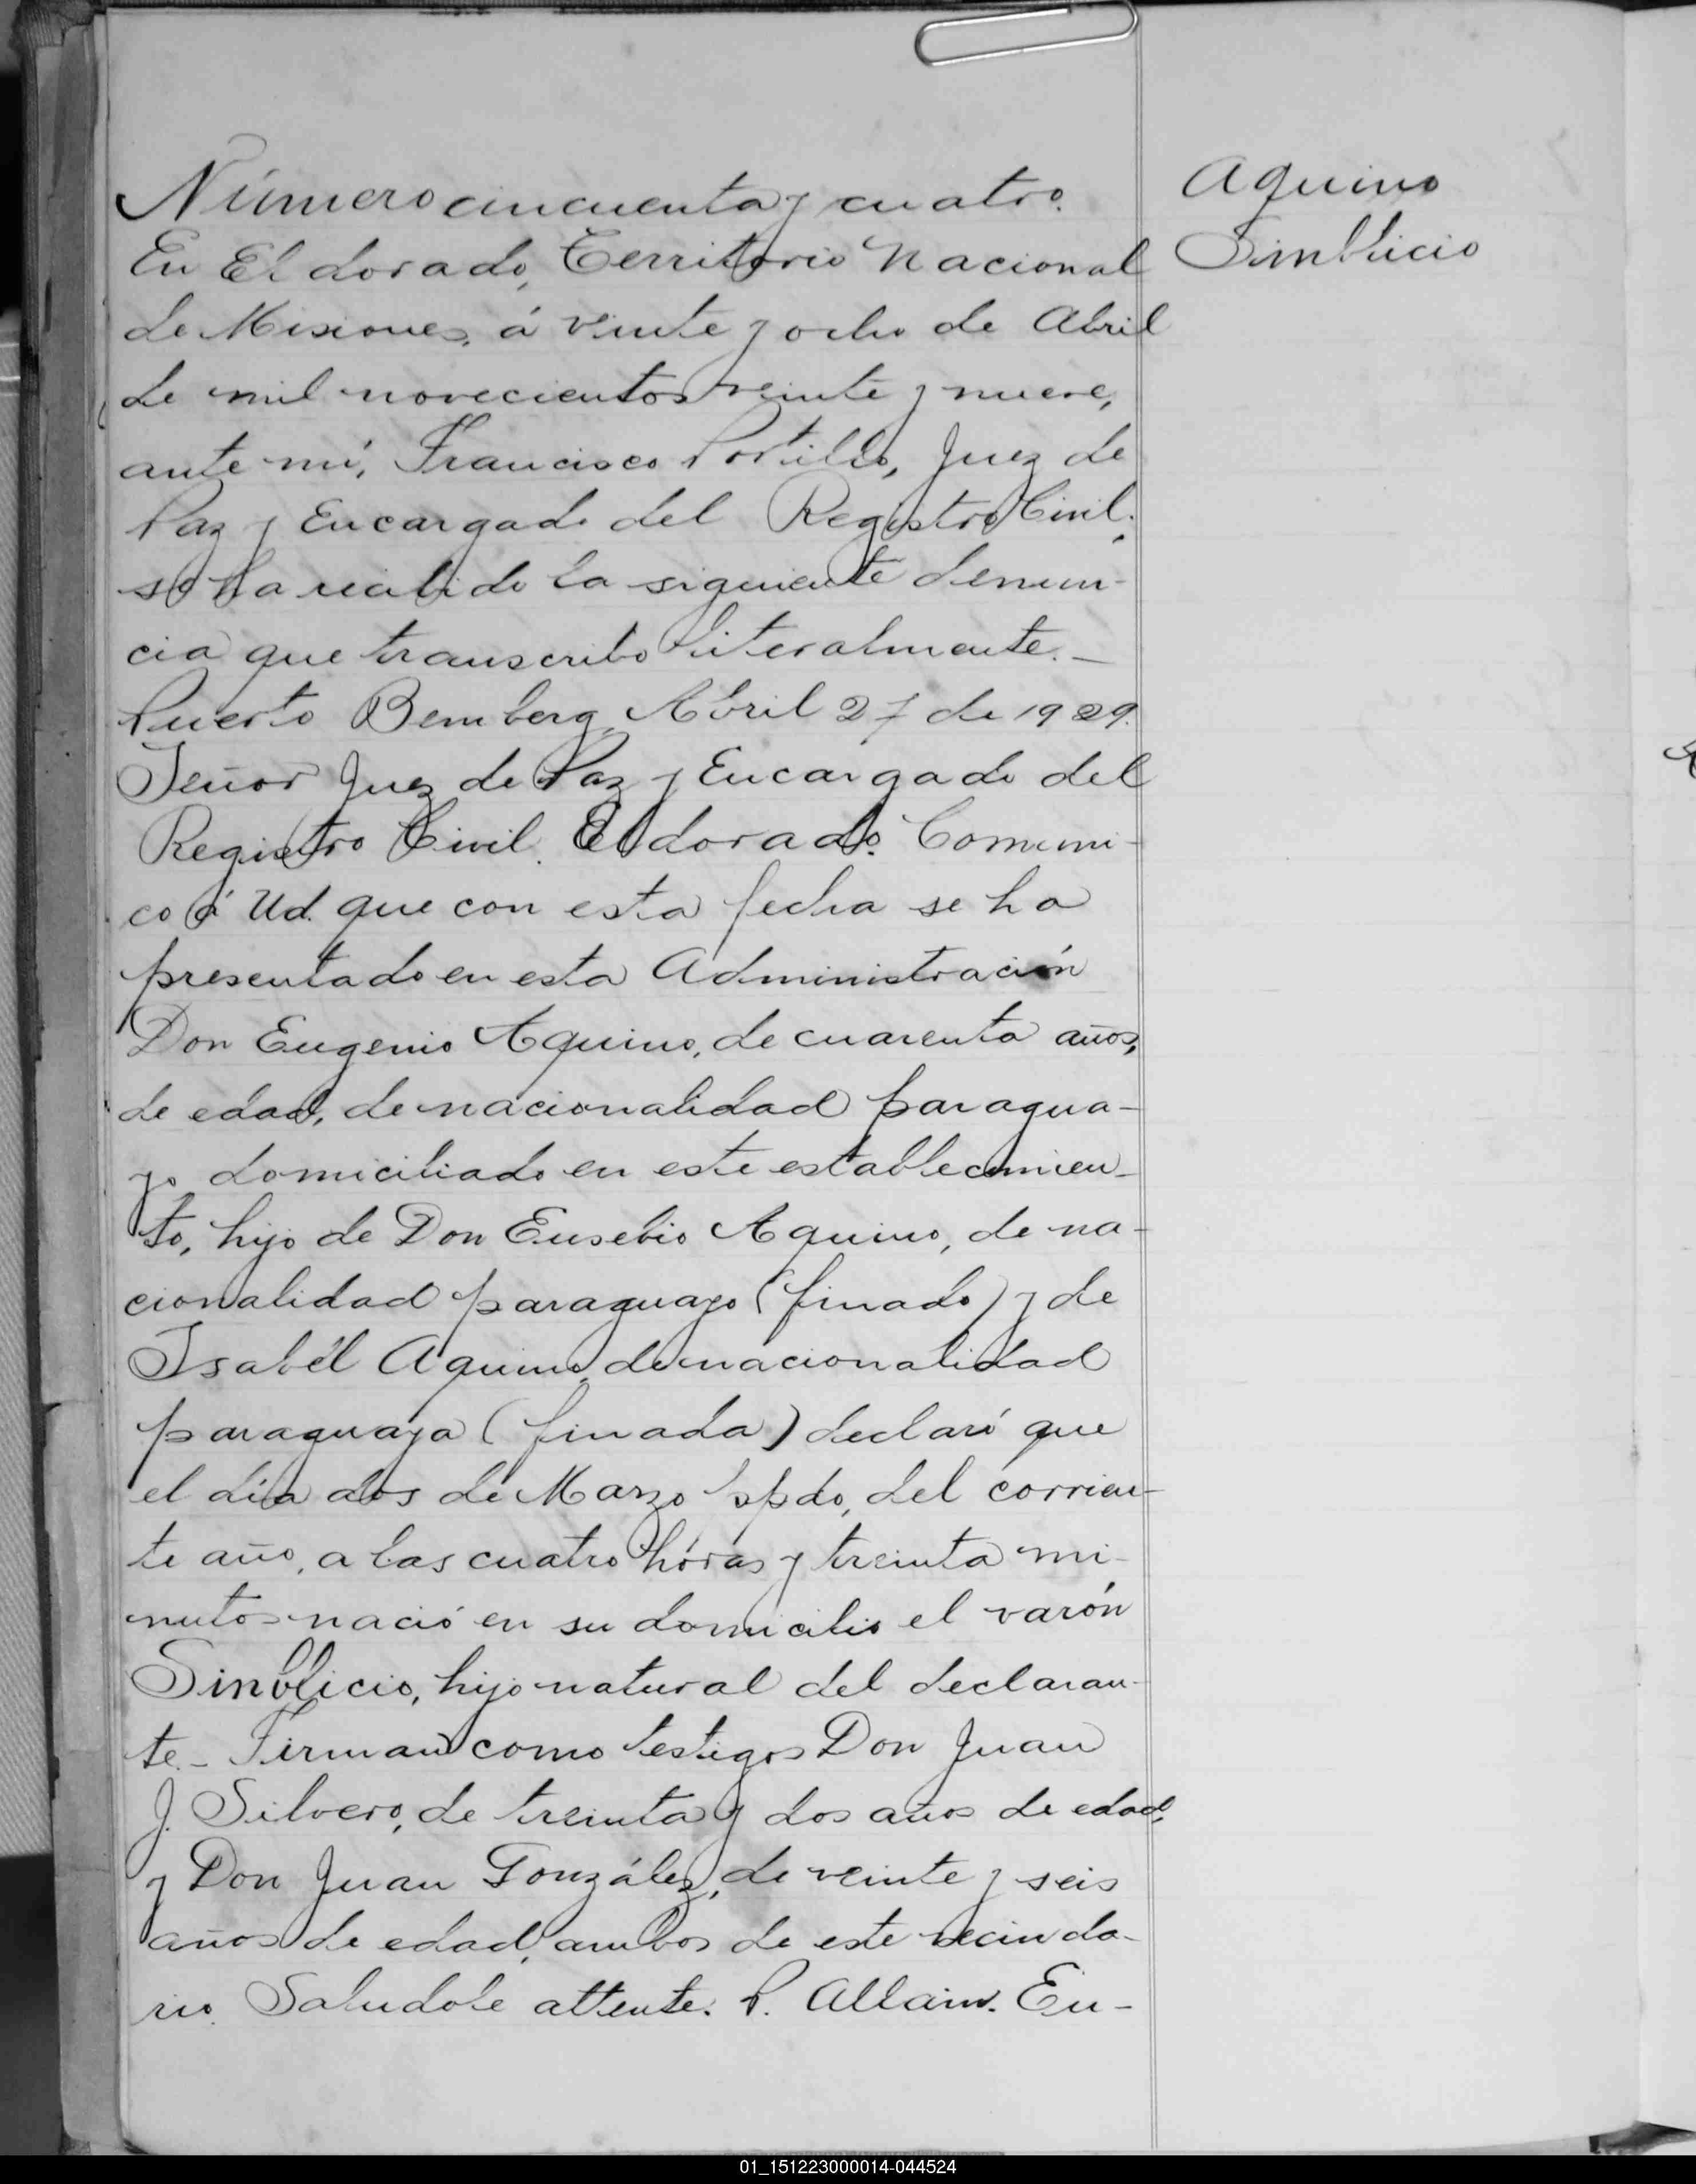 Número cincuenta y cuatro.
En El dorado, Territorio Nacional
de Misiones, á veinte y ocho de Abril
de mil novecientos veinte y nueve,
ante mí, Francisco Portillo, Juez de
Paz y Encargado del Registro Civil,
se ha recibido la siguiente denun-
cia que transcribo literalmente. -
Puerto Bemberg, Abril 27 de 1929.
Señor Juez de Paz y Encargado del
Registro Civil. El dorado. Comuni-
co á Ud. que con esta fecha se ha
presentado en esta Administración
Don Eugenio Aquino, de cuarenta años,
de edad, de nacionalidad paragua-
yo domiciliado en este establecimien-
to, hijo de Don Eusebio Aquino, de na-
cionalidad paraguayo (finado) y de
Isabél Aquino, de nacionalidad
paraguaya (finada) declaró que
el día dos de Marzo ppdo, del corrien-
te año, a las cuatro hóras y treinta mi-
nutos nació en su domicilio el varón
Sinblicio, hijo natural del declaran-
te. - Firman como testigos Don Juan
J. Silvero, de treinta y dos años de edad,
y Don Juan González, de veinte y seis
años de edad, ambos de este vecinda-
rio. Saludole attente. P. Allain. Eu-
Aquino
Simblicio
01_151223000014-044524